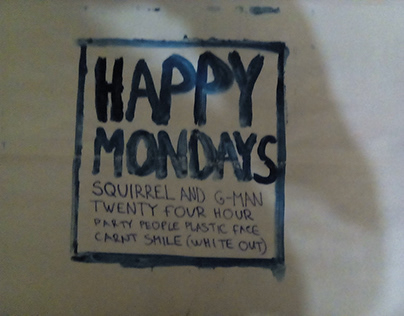 HAPPY
MONDAYS
SQUIRREL AND G-MAN
TWENTY FOUR HOUR
PARTY PEOPLE PLASTIC FACE
CARNT SMILE (WHITE OUT)